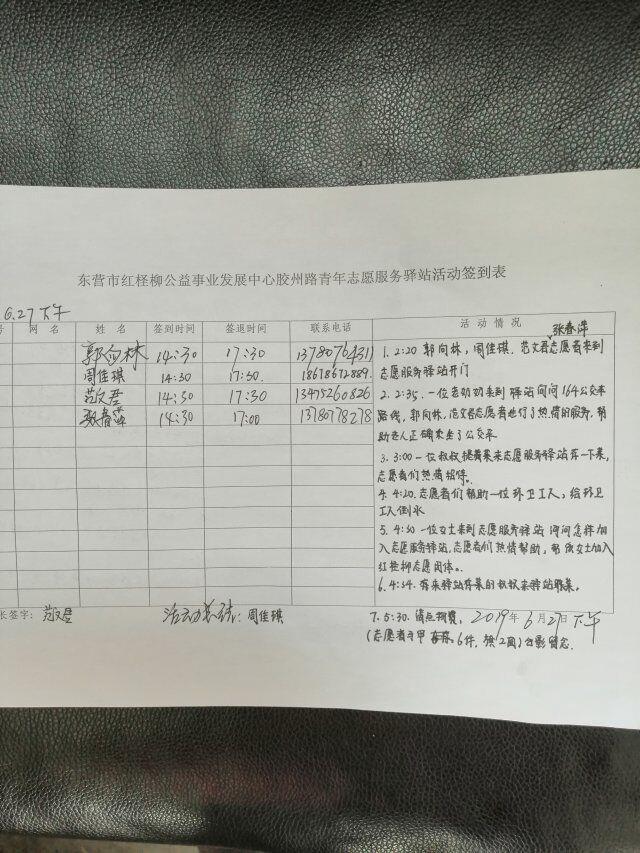 东营市红柽柳公益事业发展中心胶州路青年志愿服务驿站活动签到表
6.27下午
号 网 名 姓 名 签到时间 签退时间 联系电话 活 动 情 况
郭向林 14:30 17:30 13780764311
周佳琪 14:30 17:30. 18678672889.
范文君 14:30 17:30 13475260826
张春萍 14:30 17:00 13780778278
张春萍
1. 2:20 郭向林, 周佳琪. 范文君志愿者来到
志愿服务驿站开门
2. 2:35. 一位老奶奶来到 驿站询问164公交车
路线, 郭向林, 范文君志愿者进行了热情的服务, 帮
助老人正确乘坐了公交车
3. 3:00 一位叔叔提着菜来志愿服务驿站存一下菜,
志愿者们热情招待.
4. 4:20. 志愿者们帮助一位环卫工人, 给环卫
工人倒水
5. 4:30 一位女士来到志愿服务驿站 询问怎样加
入志愿服务驿站, 志愿者们热情帮助, 帮 女士加入
红柽柳志愿团体.
6. 4:54. 存来驿站存菜的叔叔来驿站取菜.
长签字: 范文君 活动总结: 周佳琪
7. 5:30. 清点物资, 2019年6月27日下午
(志愿者马甲 6件, ) 合影留念.